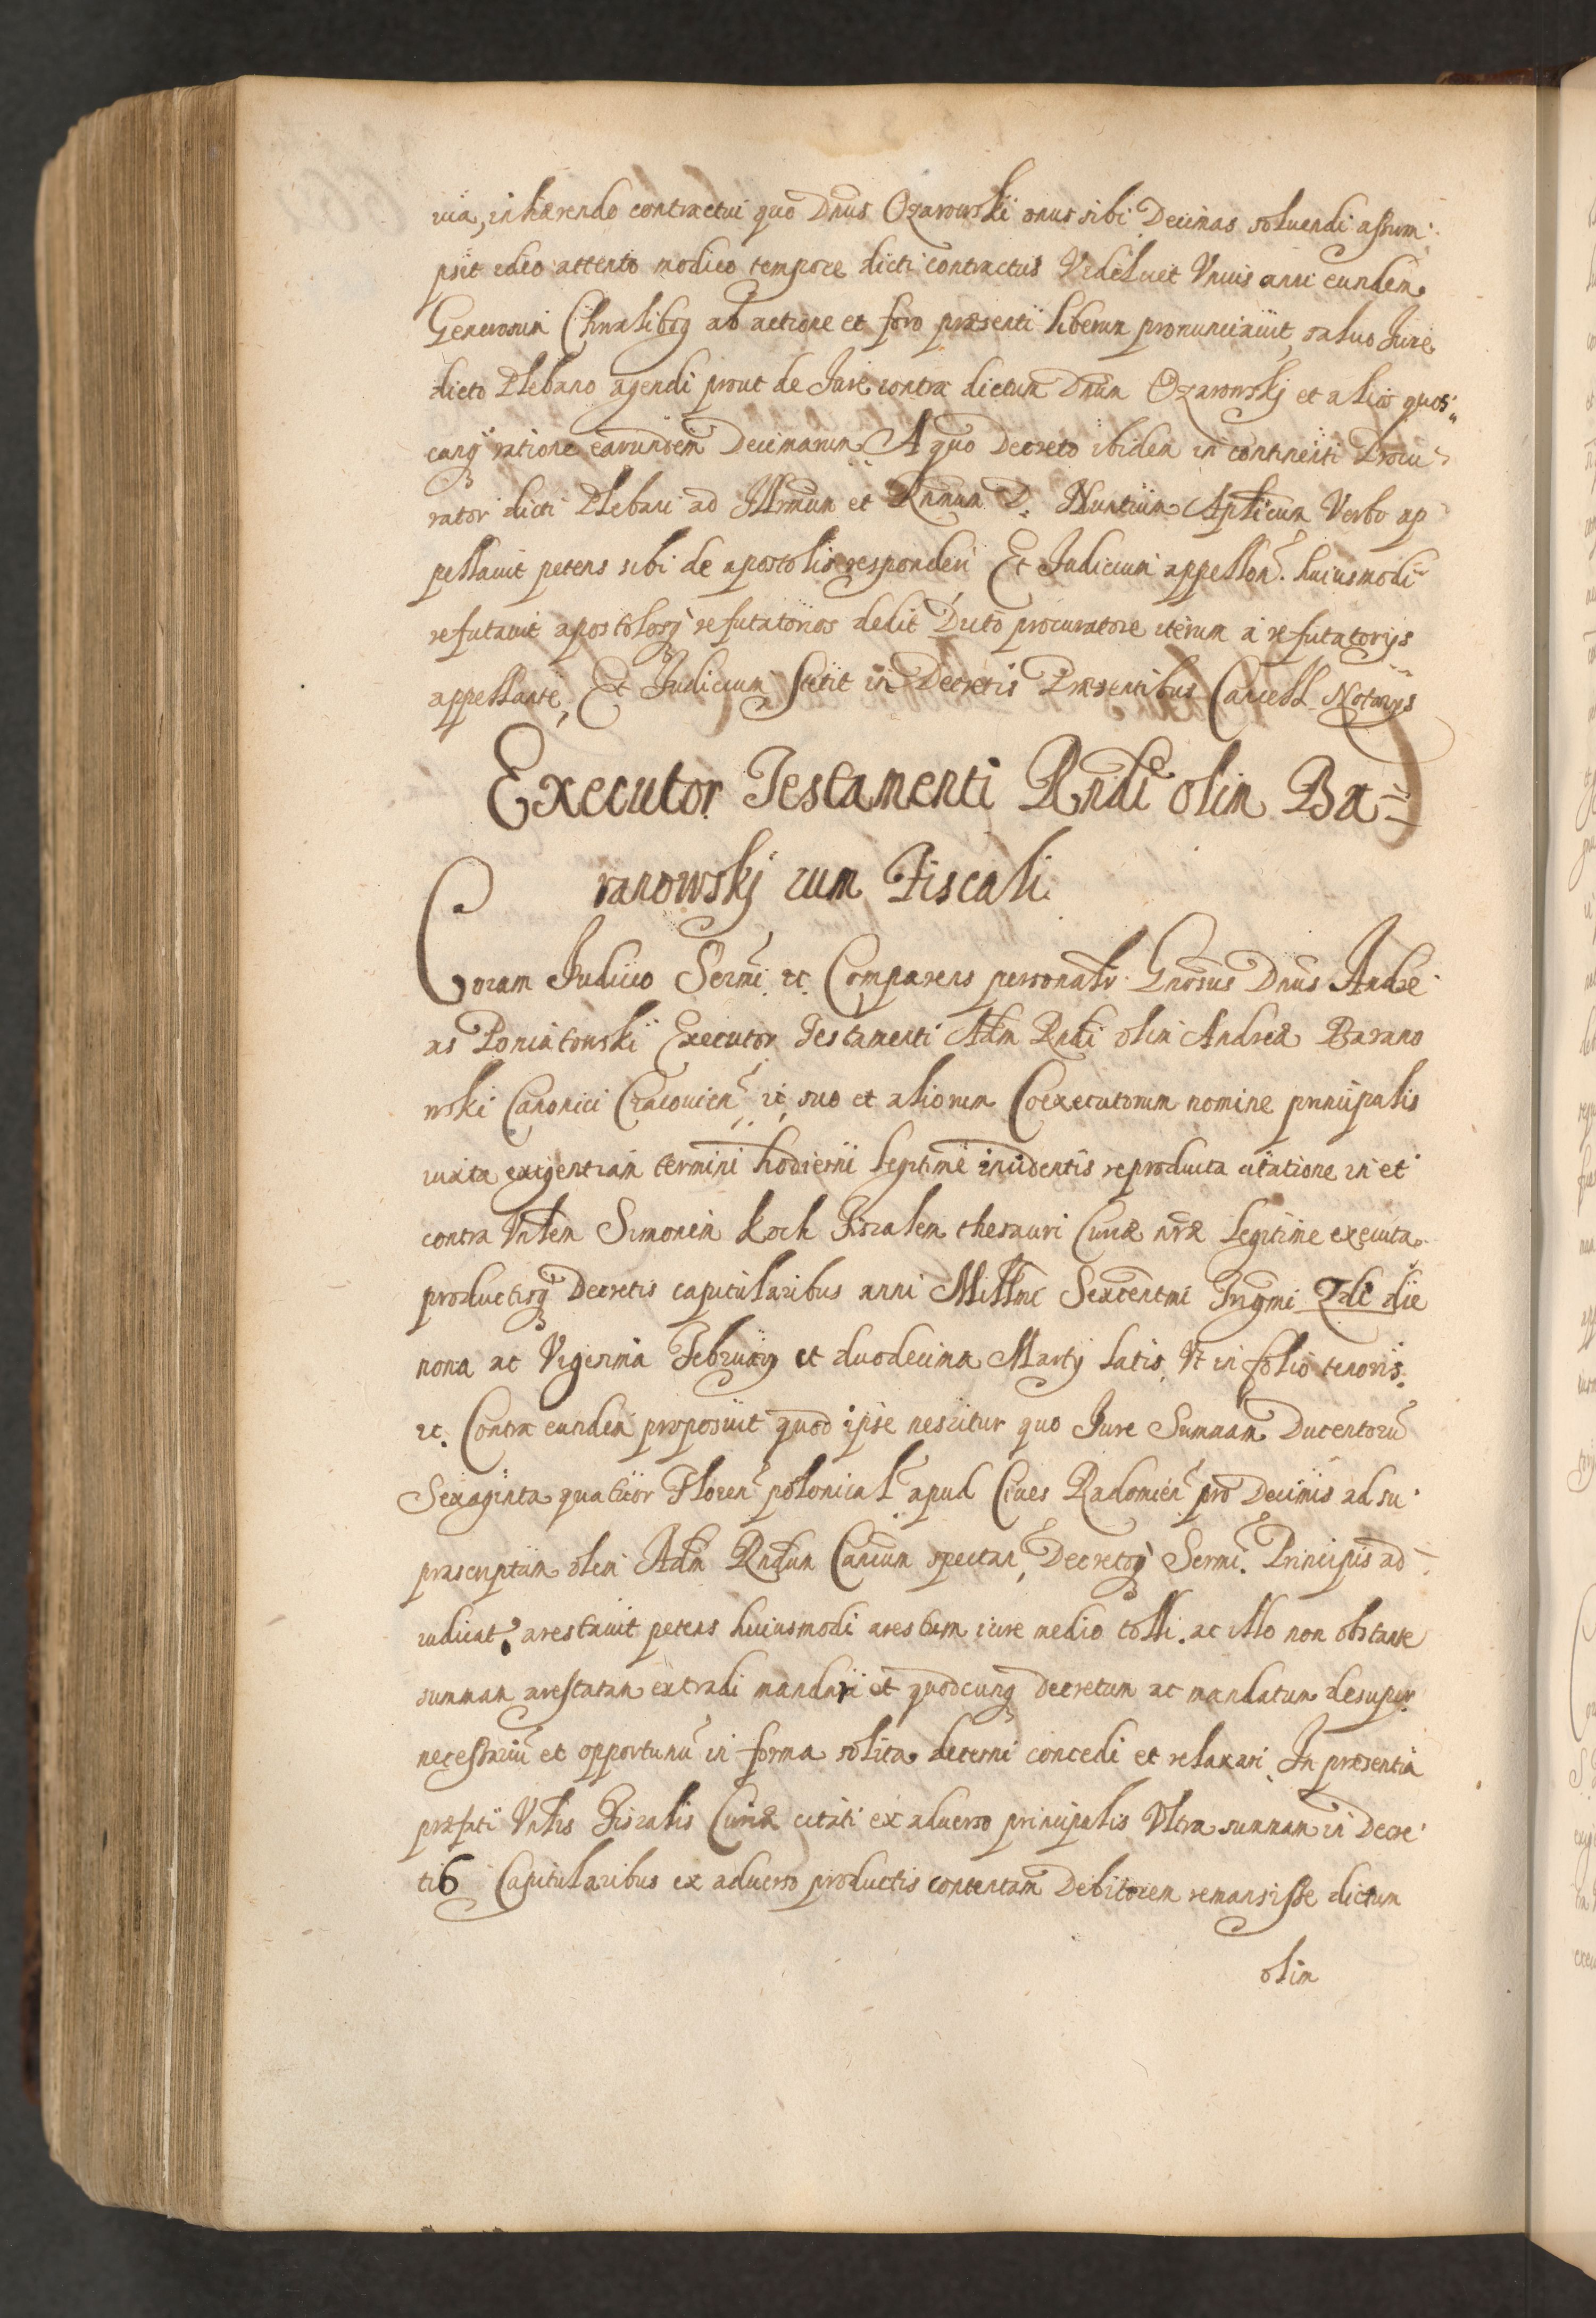 uia, inhærendo contractui quo Dnus Ozarowski onus sibi Decimas soluendi assum
psit ideo attento modico tempore dicti contractus Videlicet Vnius anni eundem
Generosum Chwalibog ab actione et foro præsenti liberum pronunciauit, saluo Jure
dicto Plebano agendi prout de Jure contra dictum Dnum Ozarowskj et alios quos
cunq ratione earundem Decimarum A quo Decreto ibidem in continenti Procu
rator dicti Plebani ad Illrmum et Rndmum D. Nuntium Aplicum Verbo ap
pellauit petens sibi de apostolis responderi Et Judicium appellon. huiusmodi
refutauit apostolosq refutatorios dedit Dicto procuratore iterum a refutatorijs
appellante, Et Judicium stetit in Decretis Præsentibus Cancell. Notarijs
Executor Testamenti Rndi olim Ba=
ranowskj cum Fiscali
Coram Judicio Sermi. &c. Comparens personalr Gnosus Dnus Andre
as Poniatowski Executor Testamenti Adm Rndi olim Andreæ Barano
wski Canonici Cracouien &c. suo et aliorum Coexecutorum nomine principalis
iuxta exigentiam termini hodierni legitime incidentis reproducta citatione in et
contra Vnlem Simonem Koch Fiscalem thesauri Curiæ nræ legitime executa
productisq Decretis capitularibus anni Millmi Sexcentmi Trigmi 2di die
nona ac Vigesima Februarij et duodecima Martij latis Vt in folio tenoris.
&c. Contra eundem proposuit quod ipse nescitur quo Jure Summam Ducentoru
Sexaginta quatuor Floren polonical apud Ciues Radomien pro Decimis ad su
prascriptum olim Adm Rndum Canicum spectan, Decretoq Sermi. Principis ad
iudicat. arestauit petens huiusmodi arestum iure medio tolli. ac illo non obstante
summam arestatam extradi mandari et quodcunq Decretum ac mandatum desuper
necessariu et opportunu in forma solita decerni concedi et relaxari In præsentia
præfati Vnlis Fiscalis Curiæ citati ex aduerso principalis Vltra summam in Decre
tis Capitularibus ex aduerso productis contentam Debitorem remansisse dictum
olim